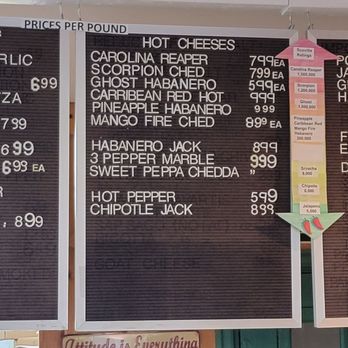 PRICES PER POUND
ARLIC
6.99
TZA
7.99
6.99
6.99 EA
, 8.99
HOT CHEESES
CAROLINA REAPER 7.99 EA
SCORPION CHED 7.99 EA
GHOST HABANERO 5.99 EA
CARIBBEAN RED HOT 9.99
PINEAPPLE HABANERO 9.99
MANGO FIRE CHED 8.99 EA
HABANERO JACK 8.99
3 PEPPER MARBLE 9.99
SWEET PEPPA CHEDDA "
HOT PEPPER 5.99
CHIPOTLE JACK 8.99
Scoville
Ratings
Carolina Reaper
Scorpion
Ghost
Pineapple
Caribbean Red
Mango Fire
Habanero
Sriracha
Chipotle
Jalapeno
Attitude is Everything